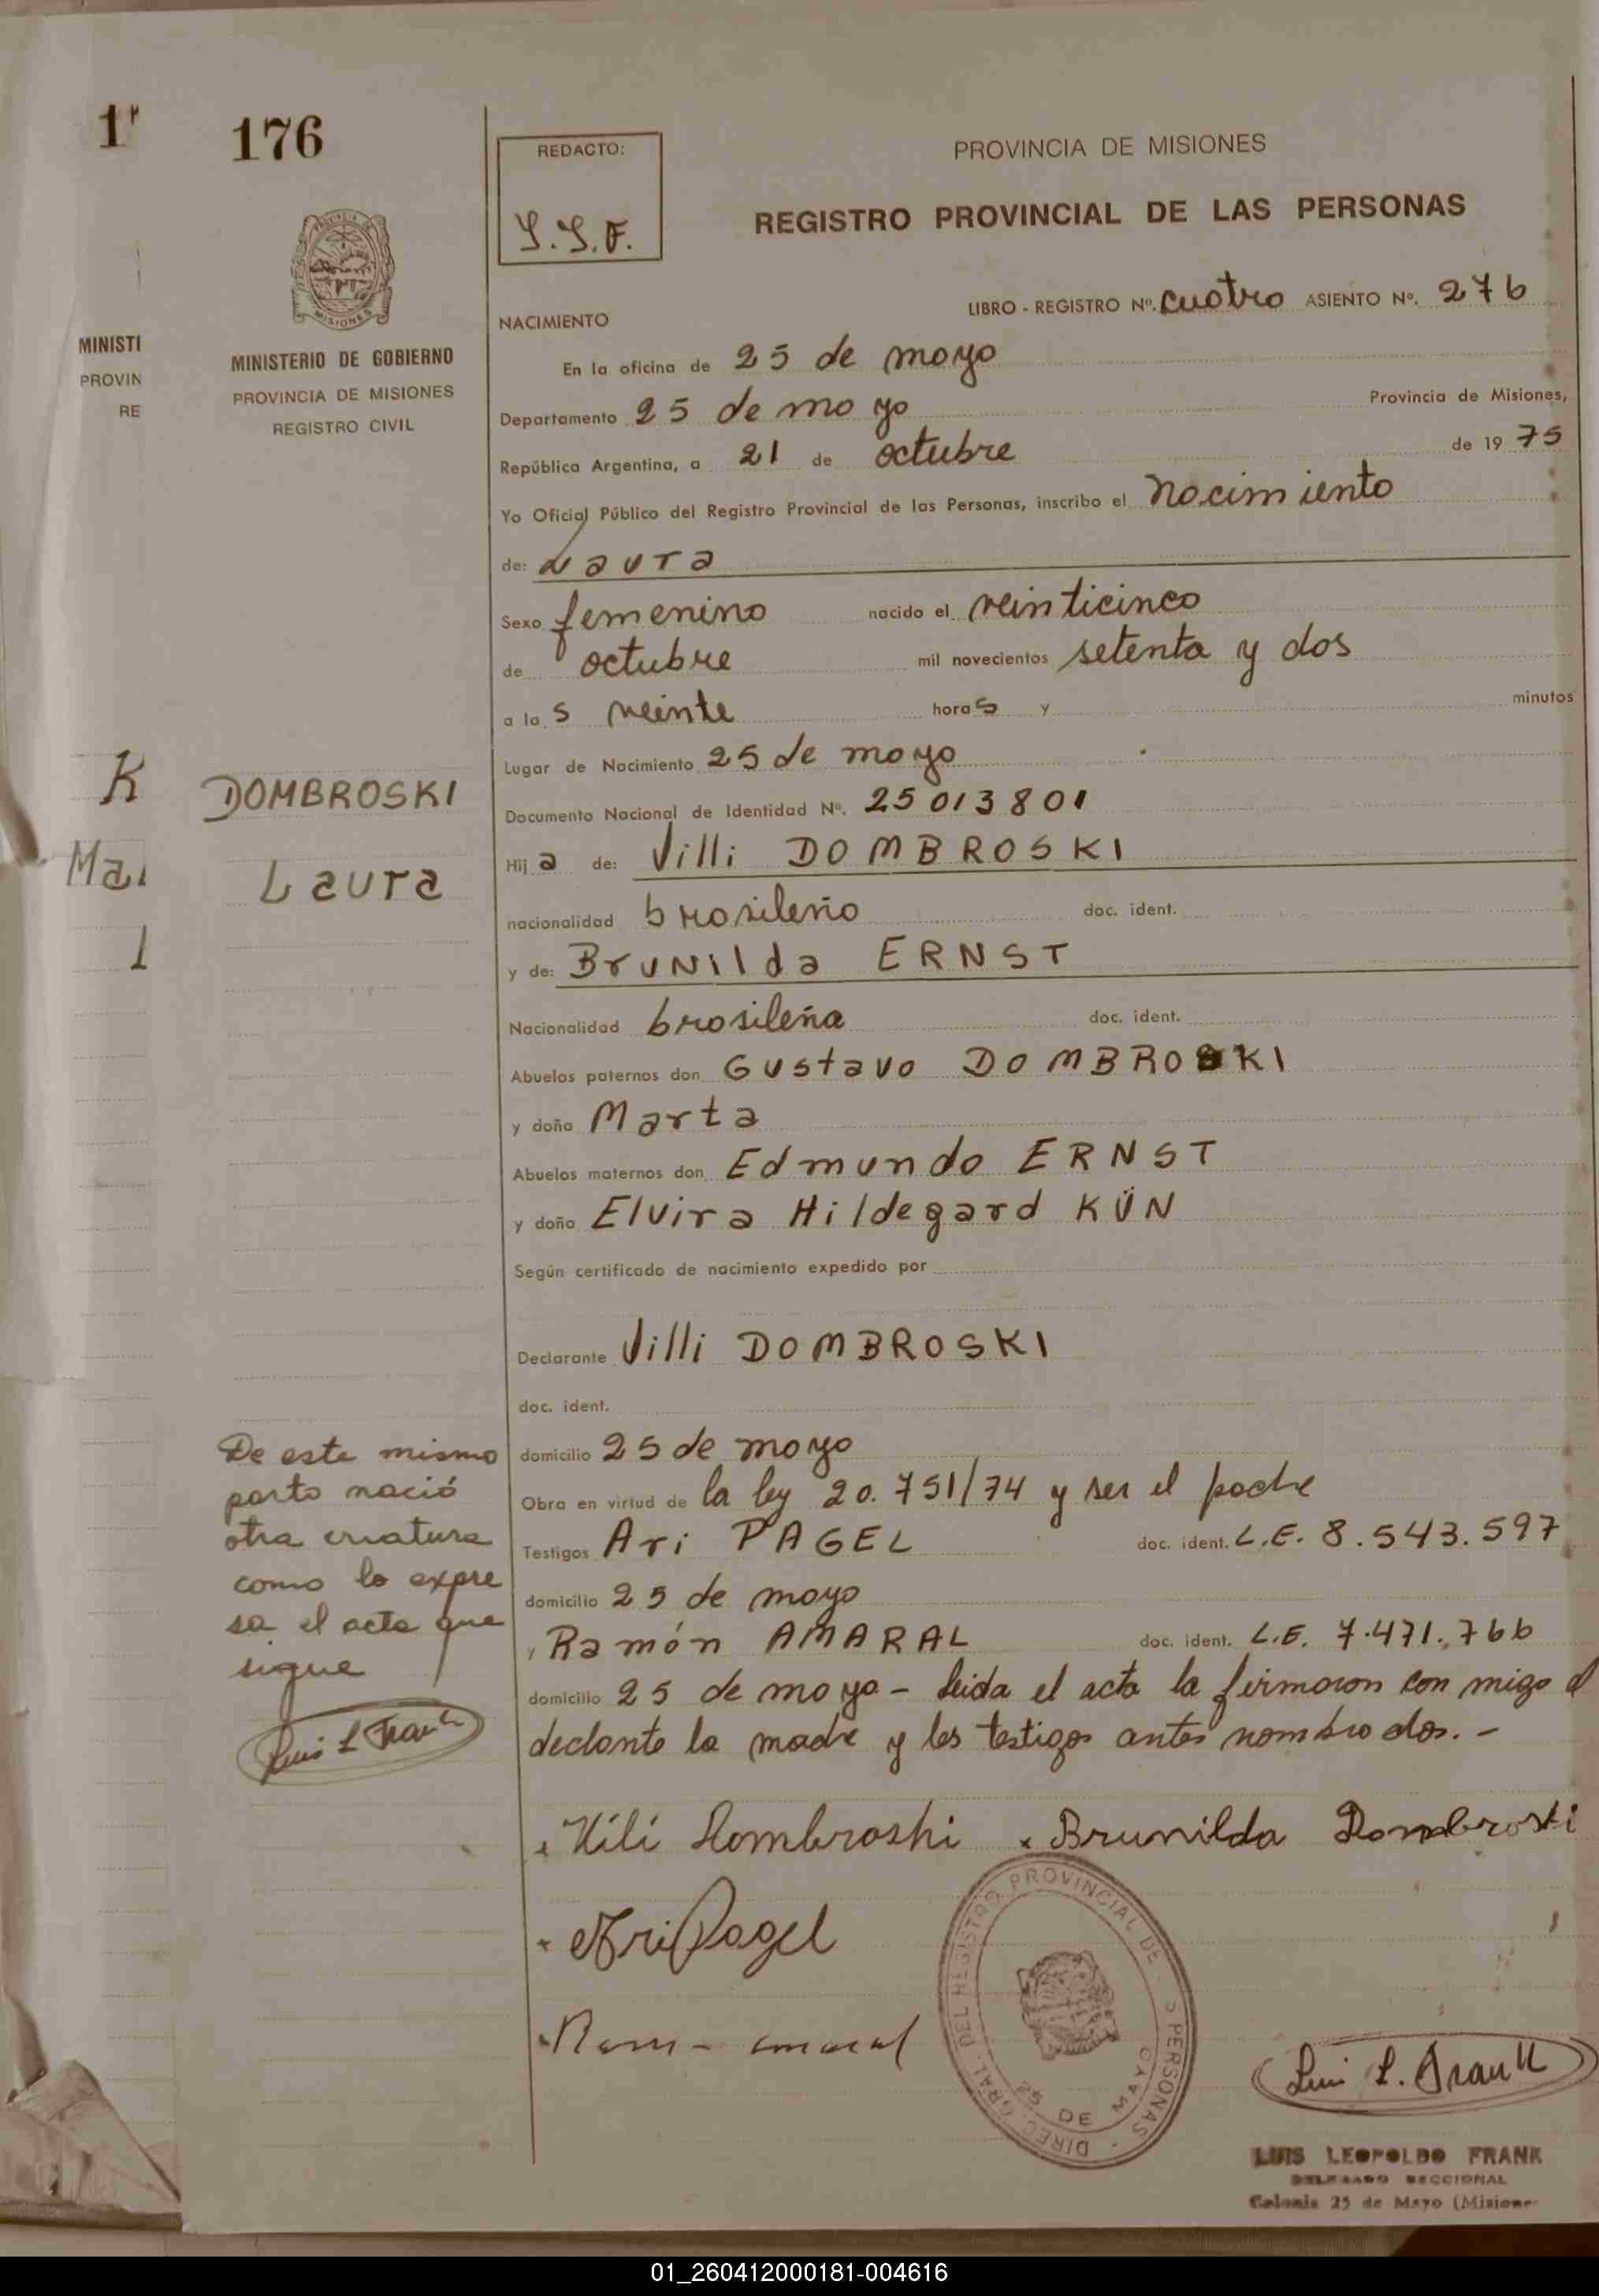 1
176
REDACTO:
S.S.F.
PROVINCIA DE MISIONES
REGISTRO PROVINCIAL DE LAS PERSONAS
PROVINCIA DE
MISIONES
MINISTI
PROVIN
RE
MINISTERIO DE GOBIERNO
PROVINCIA DE MISIONES
REGISTRO CIVIL
LIBRO - REGISTRO Nº. cuatro ASIENTO Nº. 276
NACIMIENTO
En la oficina de 25 de mayo
Departamento 25 de mayo Provincia de Misiones,
República Argentina, a 21 de octubre de 1975
Yo Oficial Público del Registro Provincial de las Personas, inscribo el nacimiento
de: Laura
Sexo femenino nacido el veinticinco
de octubre mil novecientos setenta y dos
a las veinte horas y minutos
Lugar de Nacimiento 25 de mayo
K
DOMBROSKI
Documento Nacional de Identidad Nº. 25 013 801
Ma
Laura
Hija de: Villi DOMBROSKI
nacionalidad brasileño doc. ident.
y de: Brunilda ERNST
Nacionalidad brasileña doc. ident.
Abuelos paternos don Gustavo DOMBROSKI
y doña Marta
Abuelos maternos don Edmundo ERNST
y doña Elvira Hildegard KÜN
Según certificado de nacimiento expedido por
Declarante Villi DOMBROSKI
doc. ident.
domicilio 25 de mayo
Obra en virtud de la ley 20.751/74 y ser el padre
Testigos Ari PAGEL doc. ident. L.E. 8.543.597
domicilio 25 de mayo
y Ramón AMARAL doc. ident. L.E. 7.471.766
domicilio 25 de mayo - leida el acta la firmaron con migo el
declante la madre y los testigos antes nombrados.-
De este mismo
parto nació
otra criatura
como lo expre
sa el acta que
sigue
Luis L Frank
Vili Dombroski × Brunilda Dombroski
× Ari Pagel
amaral
DIREC. GRAL. DEL REGISTRO PROVINCIAL DE S PERSONAS
25 DE MAYO
Luis L. Frank
LUIS LEOPOLDO FRANK
DELEGADO SECCIONAL
Colonia 25 de Mayo (Misione
01_260412000181-004616